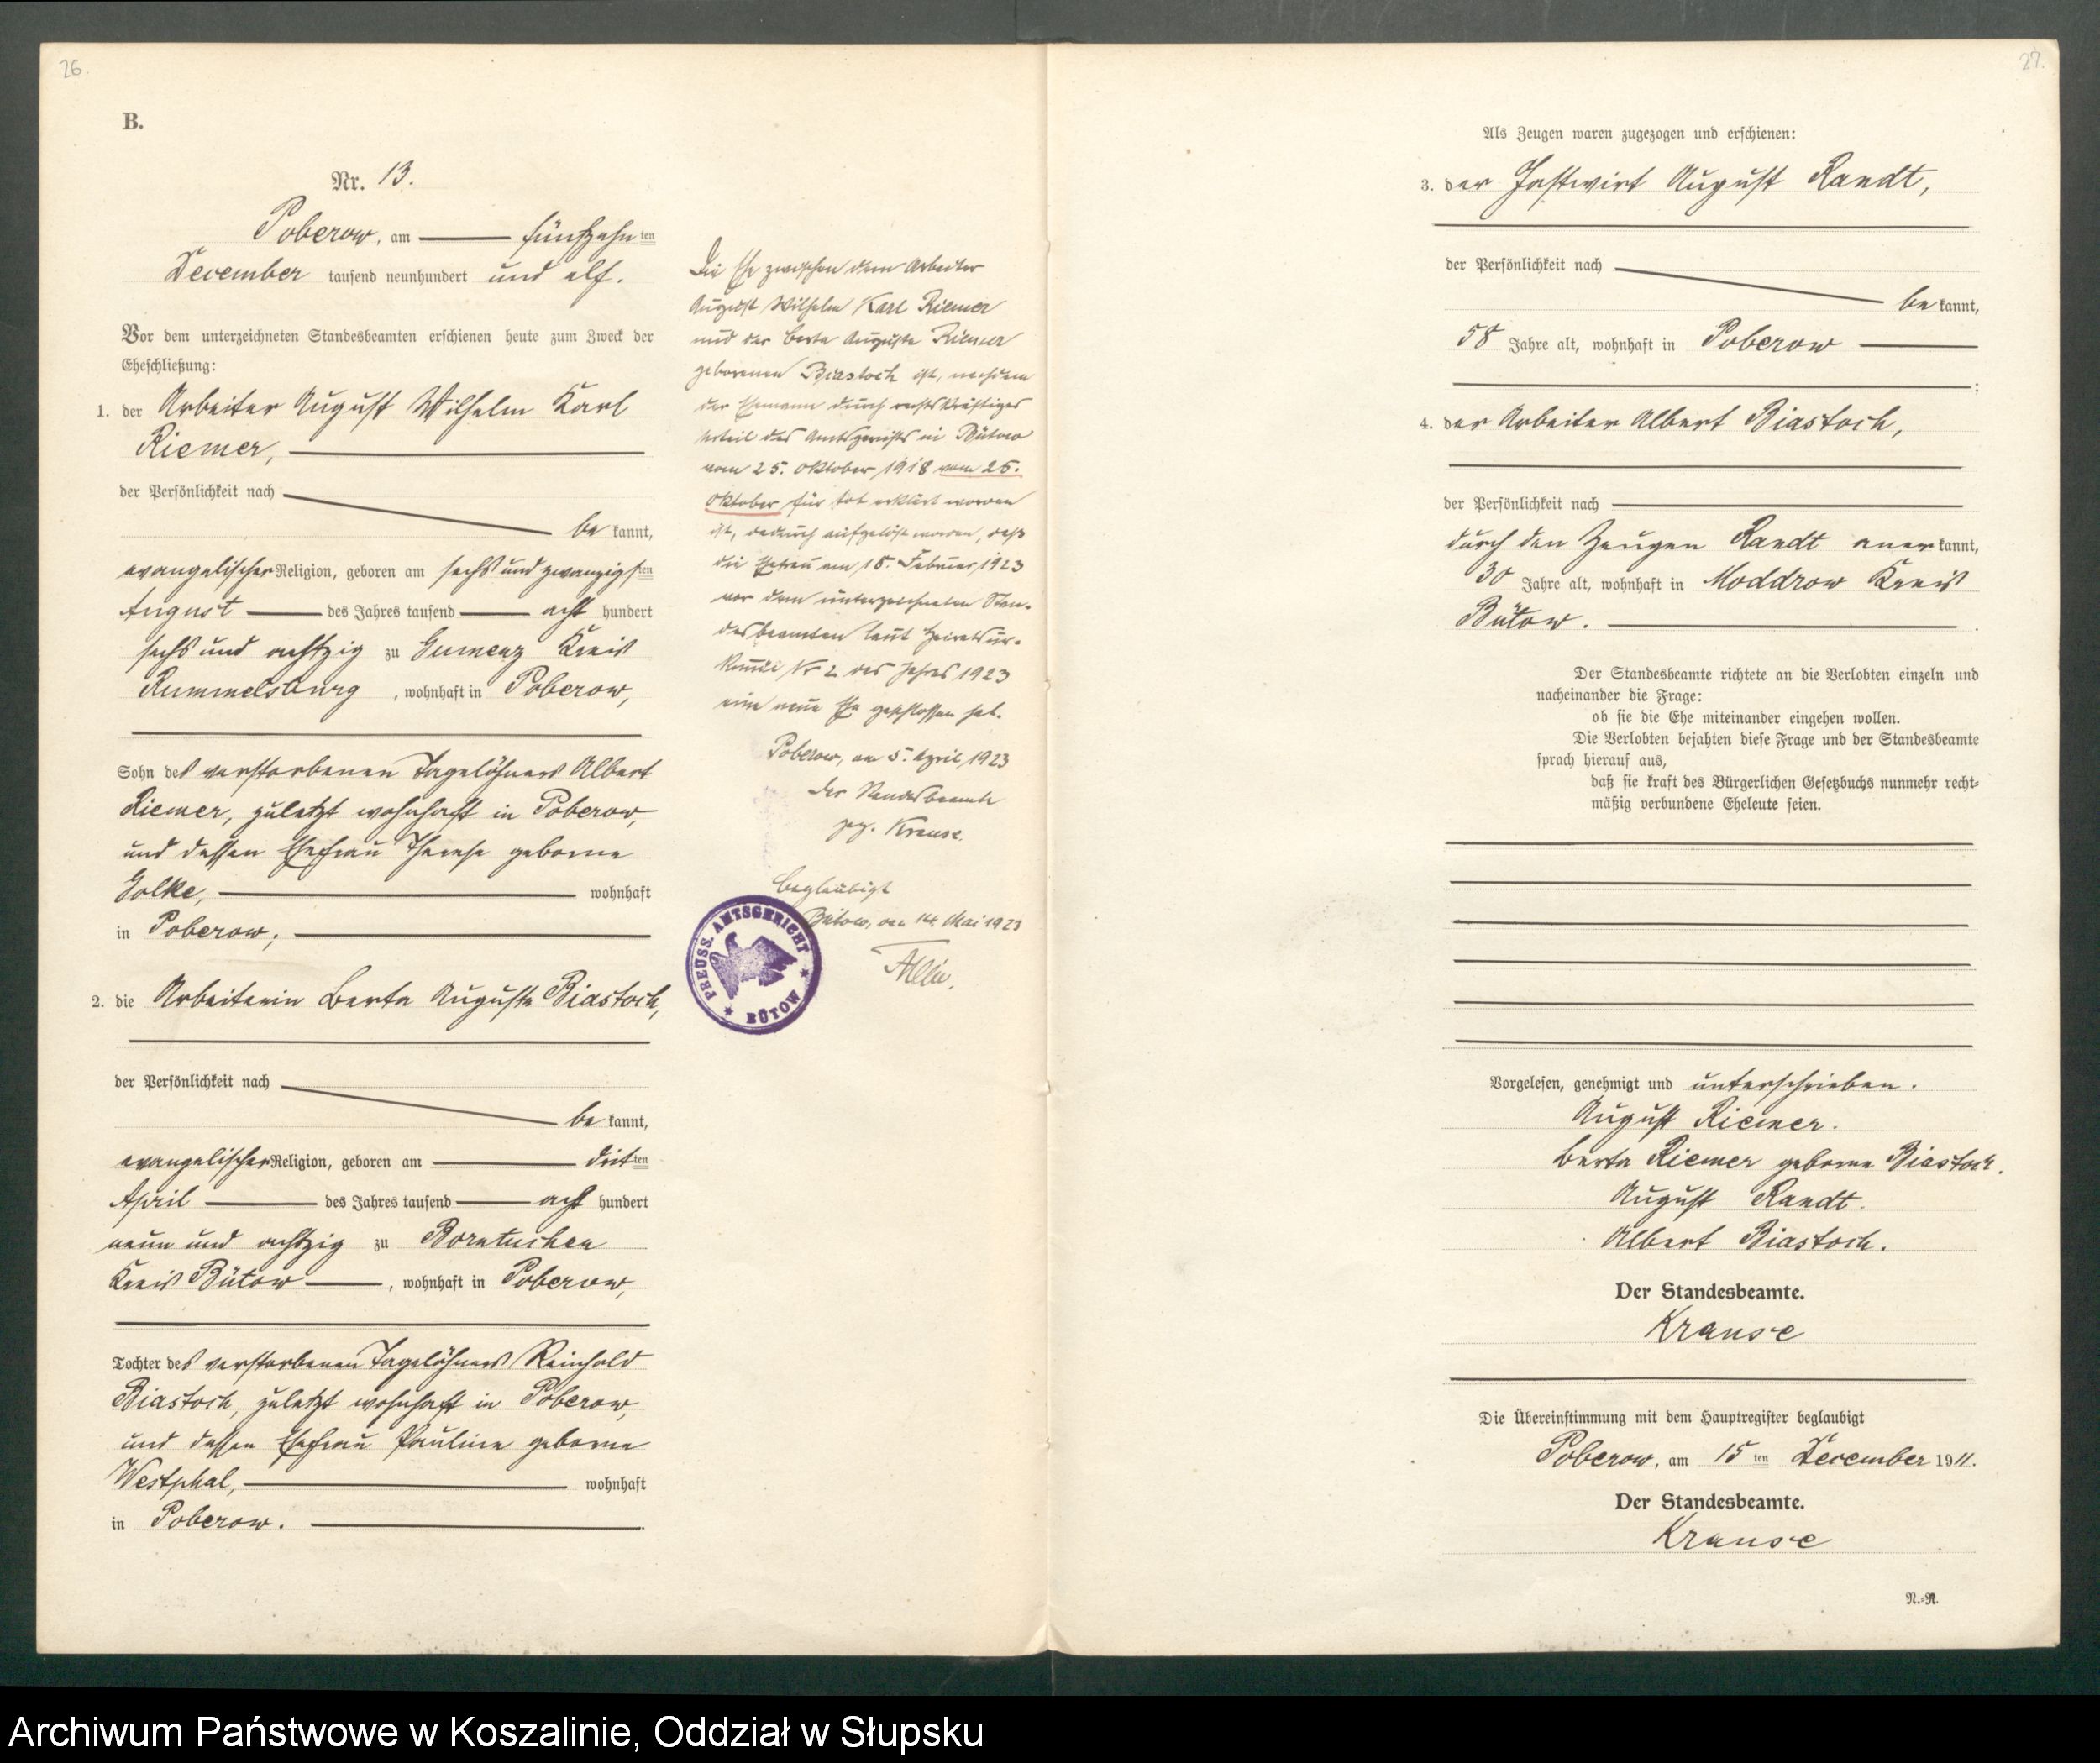 26.
B.
Nr. 13.
Poberow, am fünfzehnten
December tausend neunhundert und elf.
Vor dem unterzeichneten Standesbeamten erschienen heute zum Zweck der
Eheschließung:
1. der Arbeiter August Wilhelm Karl
Riemer,
der Persönlichkeit nach
bekannt,
evangelischer Religion, geboren am sechs und zwanzigsten
August des Jahres tausend acht hundert
sechs und achtzig zu Gumenz Kreis
Rummelsburg, wohnhaft in Poberow,
Sohn des verstorbenen Tagelöhners Albert
Riemer, zuletzt wohnhaft in Poberow,
und dessen Ehefrau Therese geborne
Golke, wohnhaft
in Poberow;
2. die Arbeiterin Berta Auguste Biastoch,
der Persönlichkeit nach
bekannt,
evangelischer Religion, geboren am dritten
April des Jahres tausend acht hundert
neun und achtzig zu Borntuchen
Kreis Bütow, wohnhaft in Poberow,
Tochter des verstorbenen Tagelöhners Reinhold
Biastoch, zuletzt wohnhaft in Poberow,
und dessen Ehefrau Pauline geborne
Westphal, wohnhaft
in Poberow.
Die Ehe zwischen dem Arbeiter
August Wilhelm Karl Riemer
und der Berta Auguste Riemer
geborenen Biastoch ist, nachdem
der Ehemann durch rechtskräftiges
Urteil des Amtsgerichts in Bütow
vom 25. Oktober 1918 vom 25.
Oktober für tot erklärt worden
ist, dadurch aufgelöst worden, daß
die Ehefrau am 18. Februar 1923
vor dem unterzeichneten Stan-
desbeamten laut Heiratsur-
kunde Nr 2 des Jahres 1923
eine neue Ehe geschlossen hat.
Poberow, am 5. April 1923
Der Standesbeamte
gez. Krause.
Beglaubigt
Bütow, den 14. Mai 1923
PREUSS. AMTSGERICHT
* BÜTOW *
27.
Als Zeugen waren zugezogen und erschienen:
3. der Gastwirt August Randt,
der Persönlichkeit nach
bekannt,
58 Jahre alt, wohnhaft in Poberow
;
4. der Arbeiter Albert Biastoch,
der Persönlichkeit nach
durch den Zeugen Randt anerkannt,
30 Jahre alt, wohnhaft in Moddrow Kreis
Bütow.
Der Standesbeamte richtete an die Verlobten einzeln und
nacheinander die Frage:
ob sie die Ehe miteinander eingehen wollen.
Die Verlobten bejahten diese Frage und der Standesbeamte
sprach hierauf aus,
daß sie kraft des Bürgerlichen Gesetzbuchs nunmehr recht-
mäßig verbundene Eheleute seien.
Vorgelesen, genehmigt und unterschrieben.
August Riemer.
Berta Riemer geborne Biastoch.
August Randt.
Albert Biastoch.
Der Standesbeamte.
Krause
Die Übereinstimmung mit dem Hauptregister beglaubigt
Poberow, am 15ten December 1911.
Der Standesbeamte.
Krause
N.-R.
Archiwum Państwowe w Koszalinie, Oddział w Słupsku